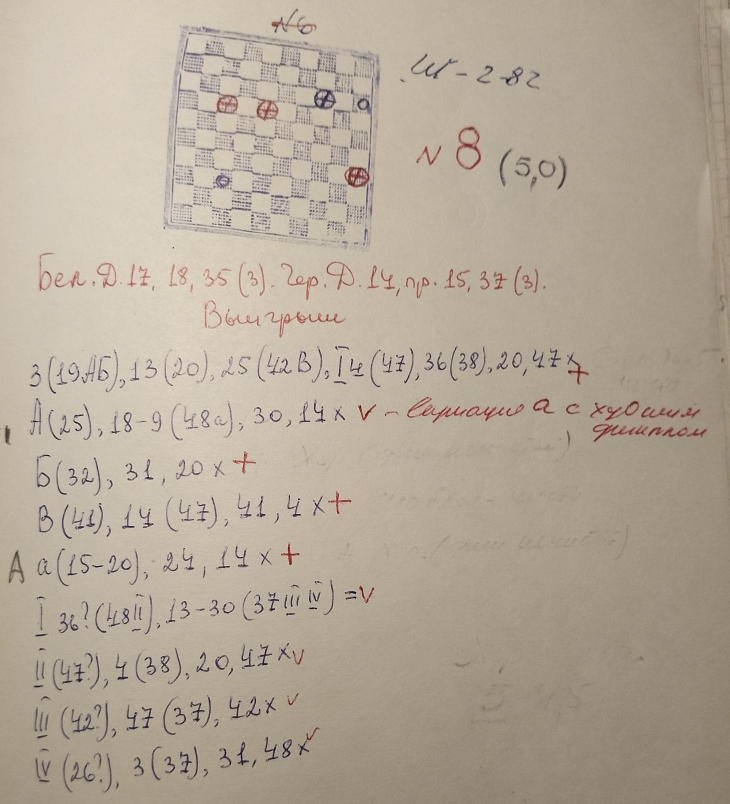 №6
Ш-2-82
№ 8 (5,0)
Бел. Д. 17, 18, 35 (3). Чер. Д. 14, пр. 15, 37 (3).
Выигрыш
3 (19АБ), 13 (20), 25 (42В), I 4 (47), 36 (38), 20, 47 x +
А (25), 18-9 (48а), 30, 14 x v - вариация а с худшим
финалом
Б (32), 31, 20 x +
В (41), 14 (47), 41, 4 x +
А а (15-20), 24, 14 x +
I 36? (48 II), 13-30 (37 III IV) = v
II (47?), 4 (38), 20, 47 x v
III (42?), 47 (37), 42 x v
IV (26?), 3 (37), 31, 48 x v